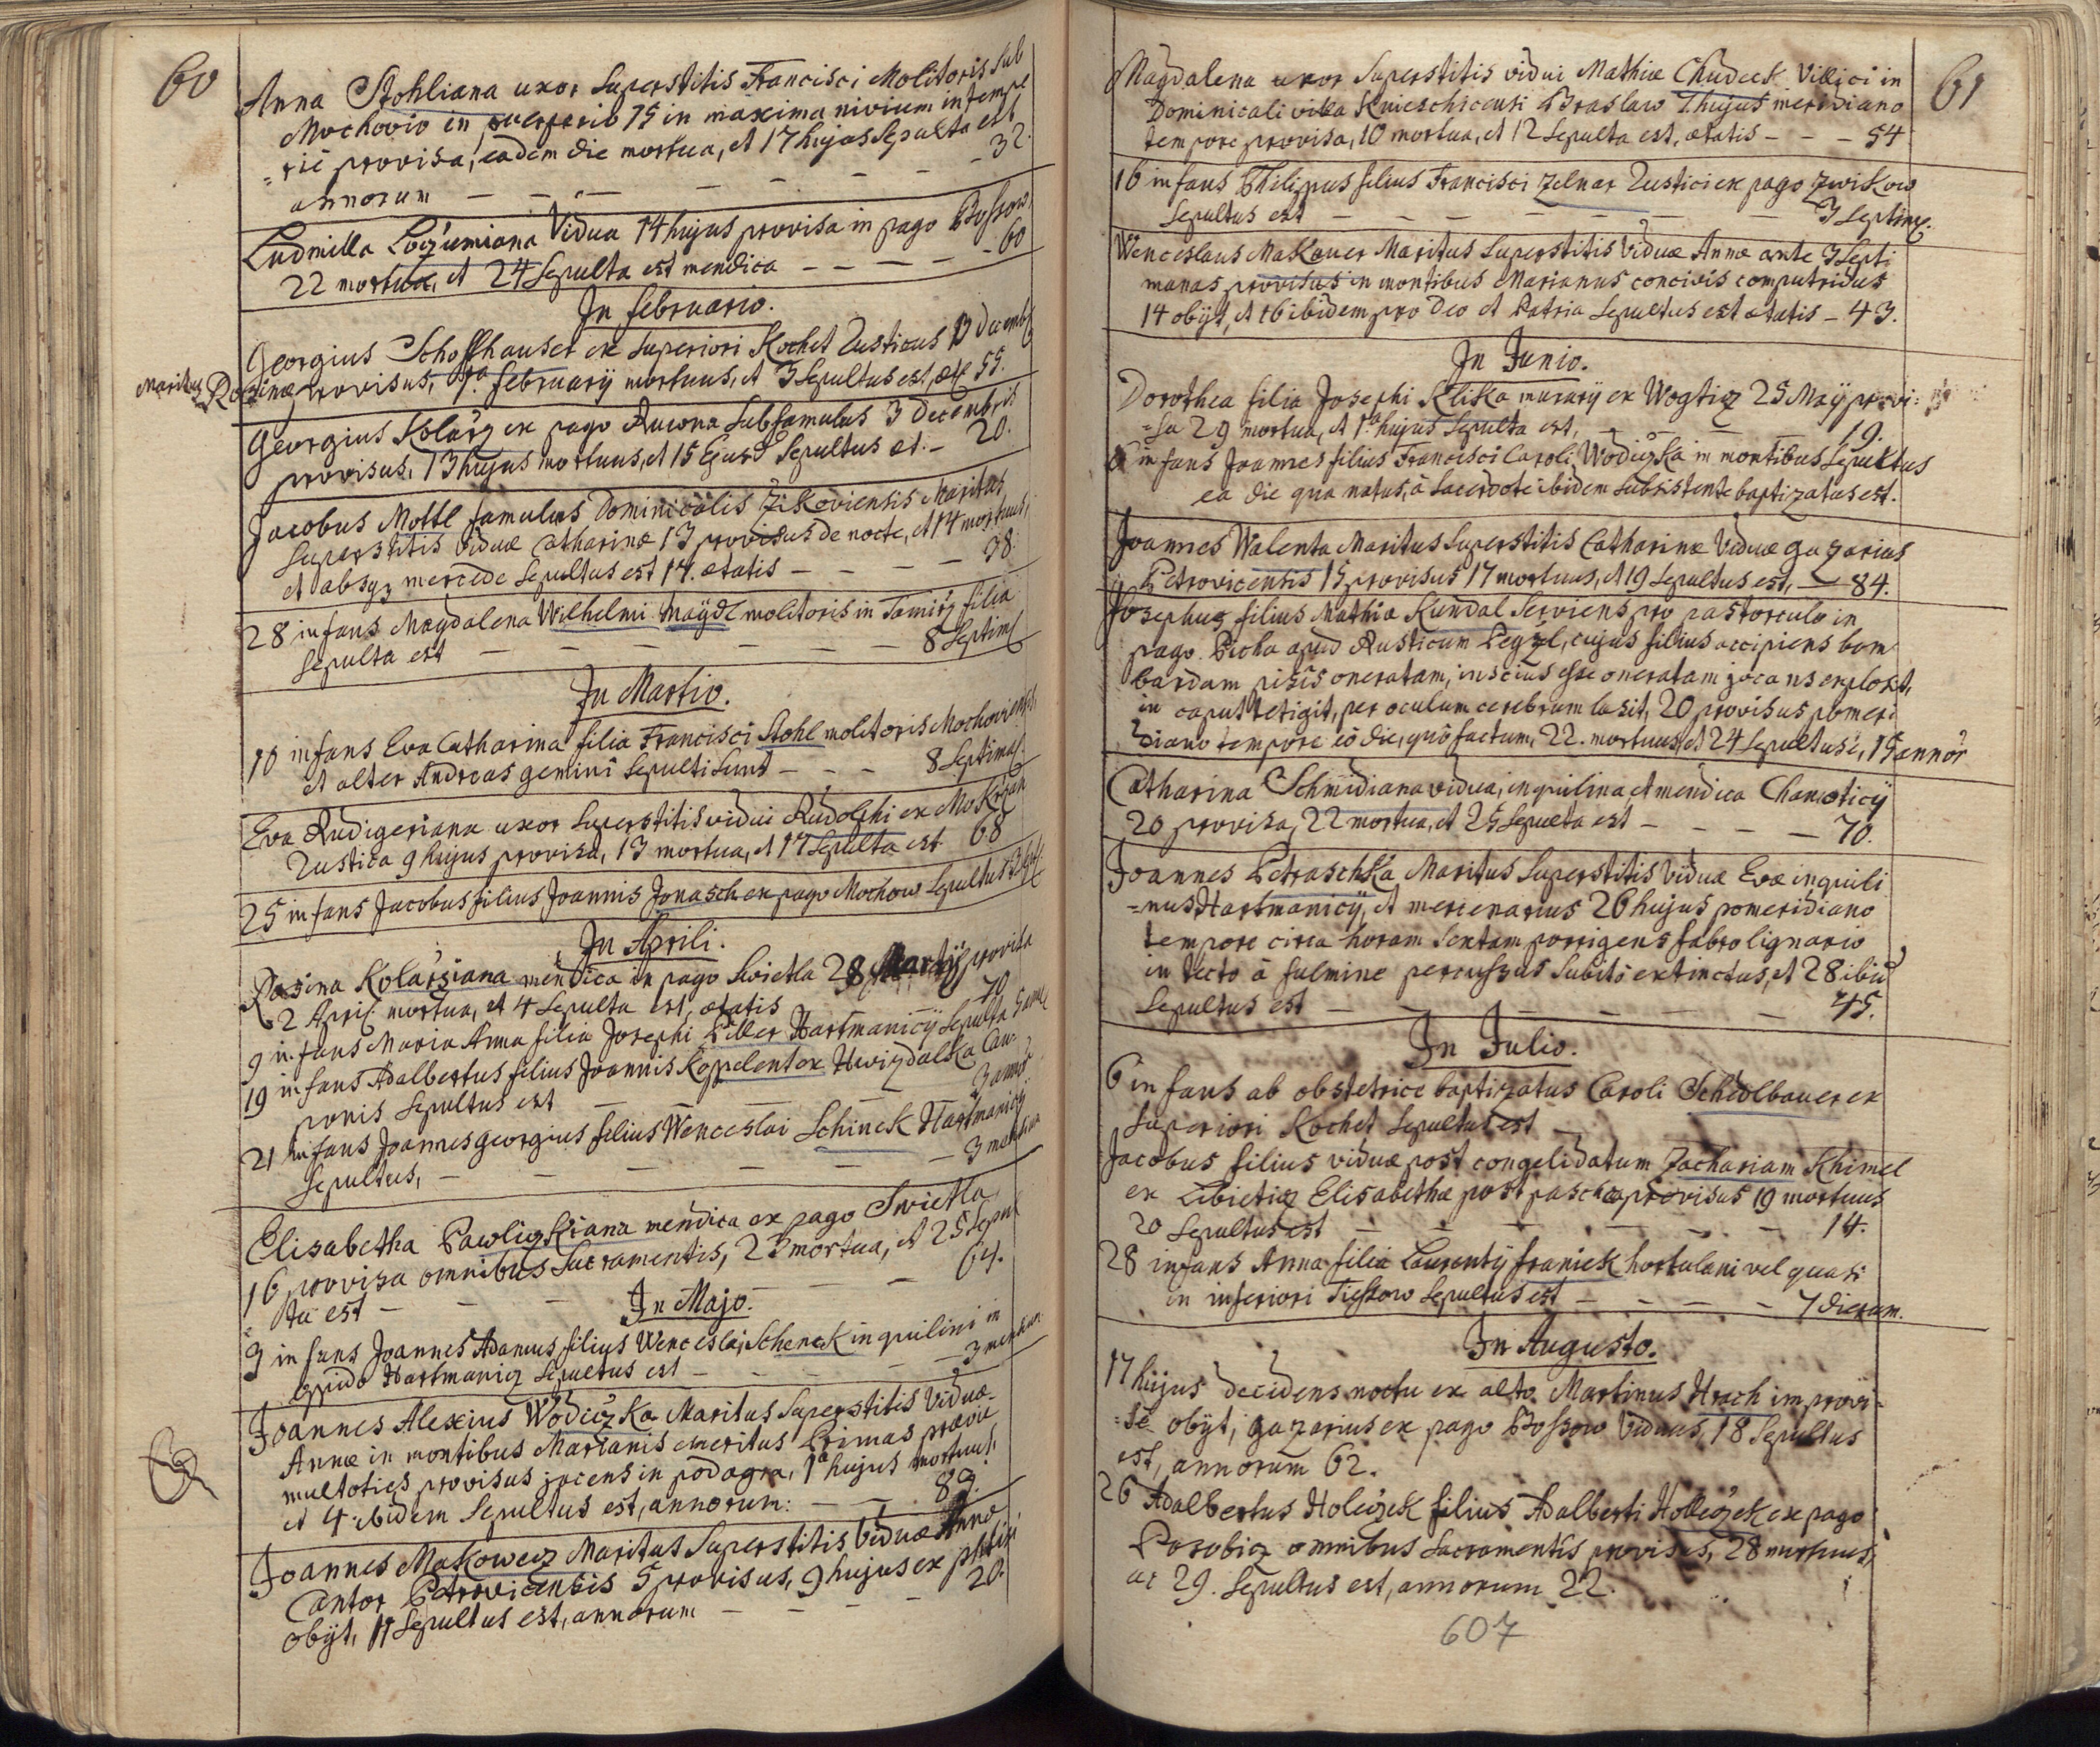 60
Anna Stohliana uxor Superstitis Francisci Molitoris sub
Mochovio in puerperio 15 in maxima nivium intempe
=rië provisa, eadem die mortua, et 17 hujus Sepulta est
annorum — — — — — — - 32.
Ludmilla Loczumiana Vidua 14 hujus provisa in pago Bossow
22 mortua, et 24 Sepulta est mendica — — — — - 60
In februario.
Georgius Schoffhauser ex superiori Kochet Rusticus 13 Decemb
Maritus Rosinæ provisus, 1ma februarij mortuus, et 3 Sepultus est, æt: 55.
Georgius Kolarz ex pago Rucona Subfamulus 3 Decembris
provisus, 13 hujus mortuus, et 15 Ejusd Sepultus est. — 20.
Jacobus Mottl famulus Dominicalis Zikoviensis Maritus
Superstitis viduæ Catharinæ 13 provisus de nocte, et 14 mortuus,
et absq mercede Sepultus est 14. ætatis — — — — 38.
28 infans Magdalena Wilhelmi Maÿdl molitoris in Tamirz filia
Sepulta est — — — — — — 8 Septim
In Martio.
10 infans Eva Catharina filia Francisci Stohl molitoris Mochoviensis,
et alter Andreas gemini Sepulti Sunt — — - 8 Septimas.
Eva Rudigeriana uxor Superstitis vidui Rudolphi ex Mokrzan
Rustica 9 hujus provisa, 13 mortua, et 17 Sepulta est 68
25 infans Jacobus filius Joannis Jonasch ex pago Mochow Sepultus
In Aprili.
Rosina Kolarziana mendica in pago Swietla 28 Martij provisa
2 April mortua, et 4 Sepulta est, ætatis 70
9 infans Maria Anna filia Josephi Piller Hartmanicij Sepulta
19 infans Adalbertus filius Joannis Koppelent ex Hwizdalka Cau-
ponis Sepultus est — — — — 3 anno
21 infans Joannes Georgius filius Wenceslai Schinek Hartmanicij
Sepultus, — — — — — — 3 mensium
Elisabetha Pawliczkiana mendica ex pago Swietla
16 provisa omnibus Sacramentis, 23 mortua, et 25 Sepul
ta est — — — — — — 64.
In Majo.
3 infans Joannes Adamus filius Wenceslai Schenek inquilini in
oppido Hartmanicz Sepultus est — — — — 3 mensium
Joannes Alexius Wodiczka Maritus Superstitis Viduæ
Annæ in montibus Marianis emeritus Primas prævie
multoties provisus jacens in podagra, 1a hujus mortuus,
et 4 ibidem Sepultus est, annorum: — — 83.
Joannes Makowecz Maritus Superstitis Viduæ Annæ
Cantor Petrovicensis 5 provisus, 9 hujus ex phtisi
obijt, 11 Sepultus est, annorum — — — — 20.
61
Magdalena uxor Superstitis vidui Mathiæ Chudeck Villici in
Dominicali villa Knieschicensi Braslaw 7 hujus meridiano
tempore provisa, 10 mortua, et 12 Sepulta est, ætatis — — — 54
16 infans Philippus filius Francisci Zelnar Rustici ex pago Zwikow
Sepultus est — — — — — — — 3 Septima.
Wenceslaus Makover Maritus Superstitis Viduæ Annæ ante 3 Septi
manas provisus in montibus Marianus concivis computridus
14 obijt, et 16 ibidem pro Deo et Patria Sepultus est ætatis — 43.
In Junio.
Dorothea filia Josephi Kliska murarij ex Wogtiz 25 Maij provi=
=sa 29 mortua, et 1a hujus Sepulta est, — — — — 19.
infans Joannes filius Francisci Caroli Wodiczka in montibus Sepultus
ea die qua natus, à Sacerdote ibidem Subsistente baptizatus est.
Joannes Walenta Maritus Superstitis Catharinæ Viduæ gazarius
Petrovicensis 15 provisus 17 mortuus, et 19 Sepultus est, — 84.
Josephus filius Mathiæ Kundal Serviens pro pastorculo in
pago Picha apud Rusticum Pegzl, cujus filius accipiens bom
bardam pisis oneratam, inscius esse oneratam jocans explosit,
in caput tetigit, per oculum cerebrum læsit, 20 provisus pomeri
diano tempore eô die, quô factum, 22. mortuus, et 24 Sepultus è, 15 annor
Catharina Schmidiana vidua, inquilina et mendica Chamoticij
20 provisa, 22 mortua, et 25 Sepulta est — — — — 70.
Joannes Petraschka Maritus Superstitis Viduæ Evæ inquili
=nus Hartmanicij, et mercenarius 26 hujus pomeridiano
tempore circa horam Sextam porrigens fabro lignario
in tecto à fulmine percussus Subitò extinctus, et 28 ibid
Sepultus est — — — — — — — 45.
In Julio.
6 infans ab obstetrice baptizatus Caroli Schedlbauer ex
Superiori Kochet Sepultus est —
Jacobus filius viduæ post congelidatum Zachariam Khimel
ex Libietiz Elisabethæ post pascha provisus 19 mortuus
20 Sepultus est — — — — — — — 14.
28 infans Anna filia Laurentij franiek hortulani vel quasi
in inferiori Tieschow Sepultus est — — — — 7 dierum.
In Augusto.
17 hujus decidens noctu ex alto Martinus Hrach improvi-
=sè obijt, gazarius ex pago Bossow viduus, 18 Sepultus
est, annorum 62.
26 Adalbertus Holeczek filius Adalberti Holleczek ex pago
Porobicz omnibus Sacramentis provisus, 28 mortuus,
ac 29. Sepultus est, annorum 22.
607